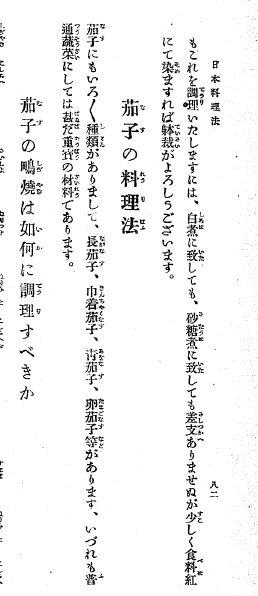 日本料理法
八二
もこれを調理いたしますには、白煮に致しても、砂糖煮に致しても差支ありませぬが少しく食料紅
にて染ますれば躰裁がよろしうございます。
茄子の料理法
茄子にもいろ〱種類がありまして、長茄子、巾着茄子、靑茄子、卵茄子等があります、いづれも普
通蔬菜にしては甚だ重寳の材料であります。
茄子の鴫燒は如何に調理すべきか